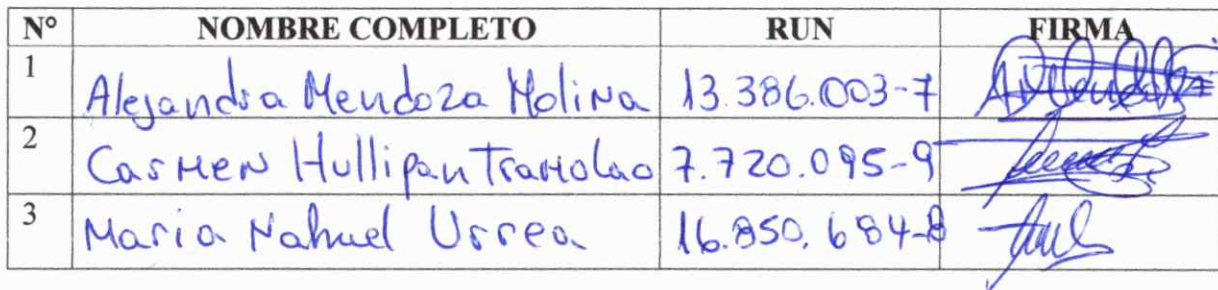 N° NOMBRE COMPLETO RUN FIRMA
1 Alejandra Mendoza Molina 13.386.003-7
2 Carmen Hullipan Tramolao 7.720.095-9
3 Maria Nahuel Urrea 16.850.684-8